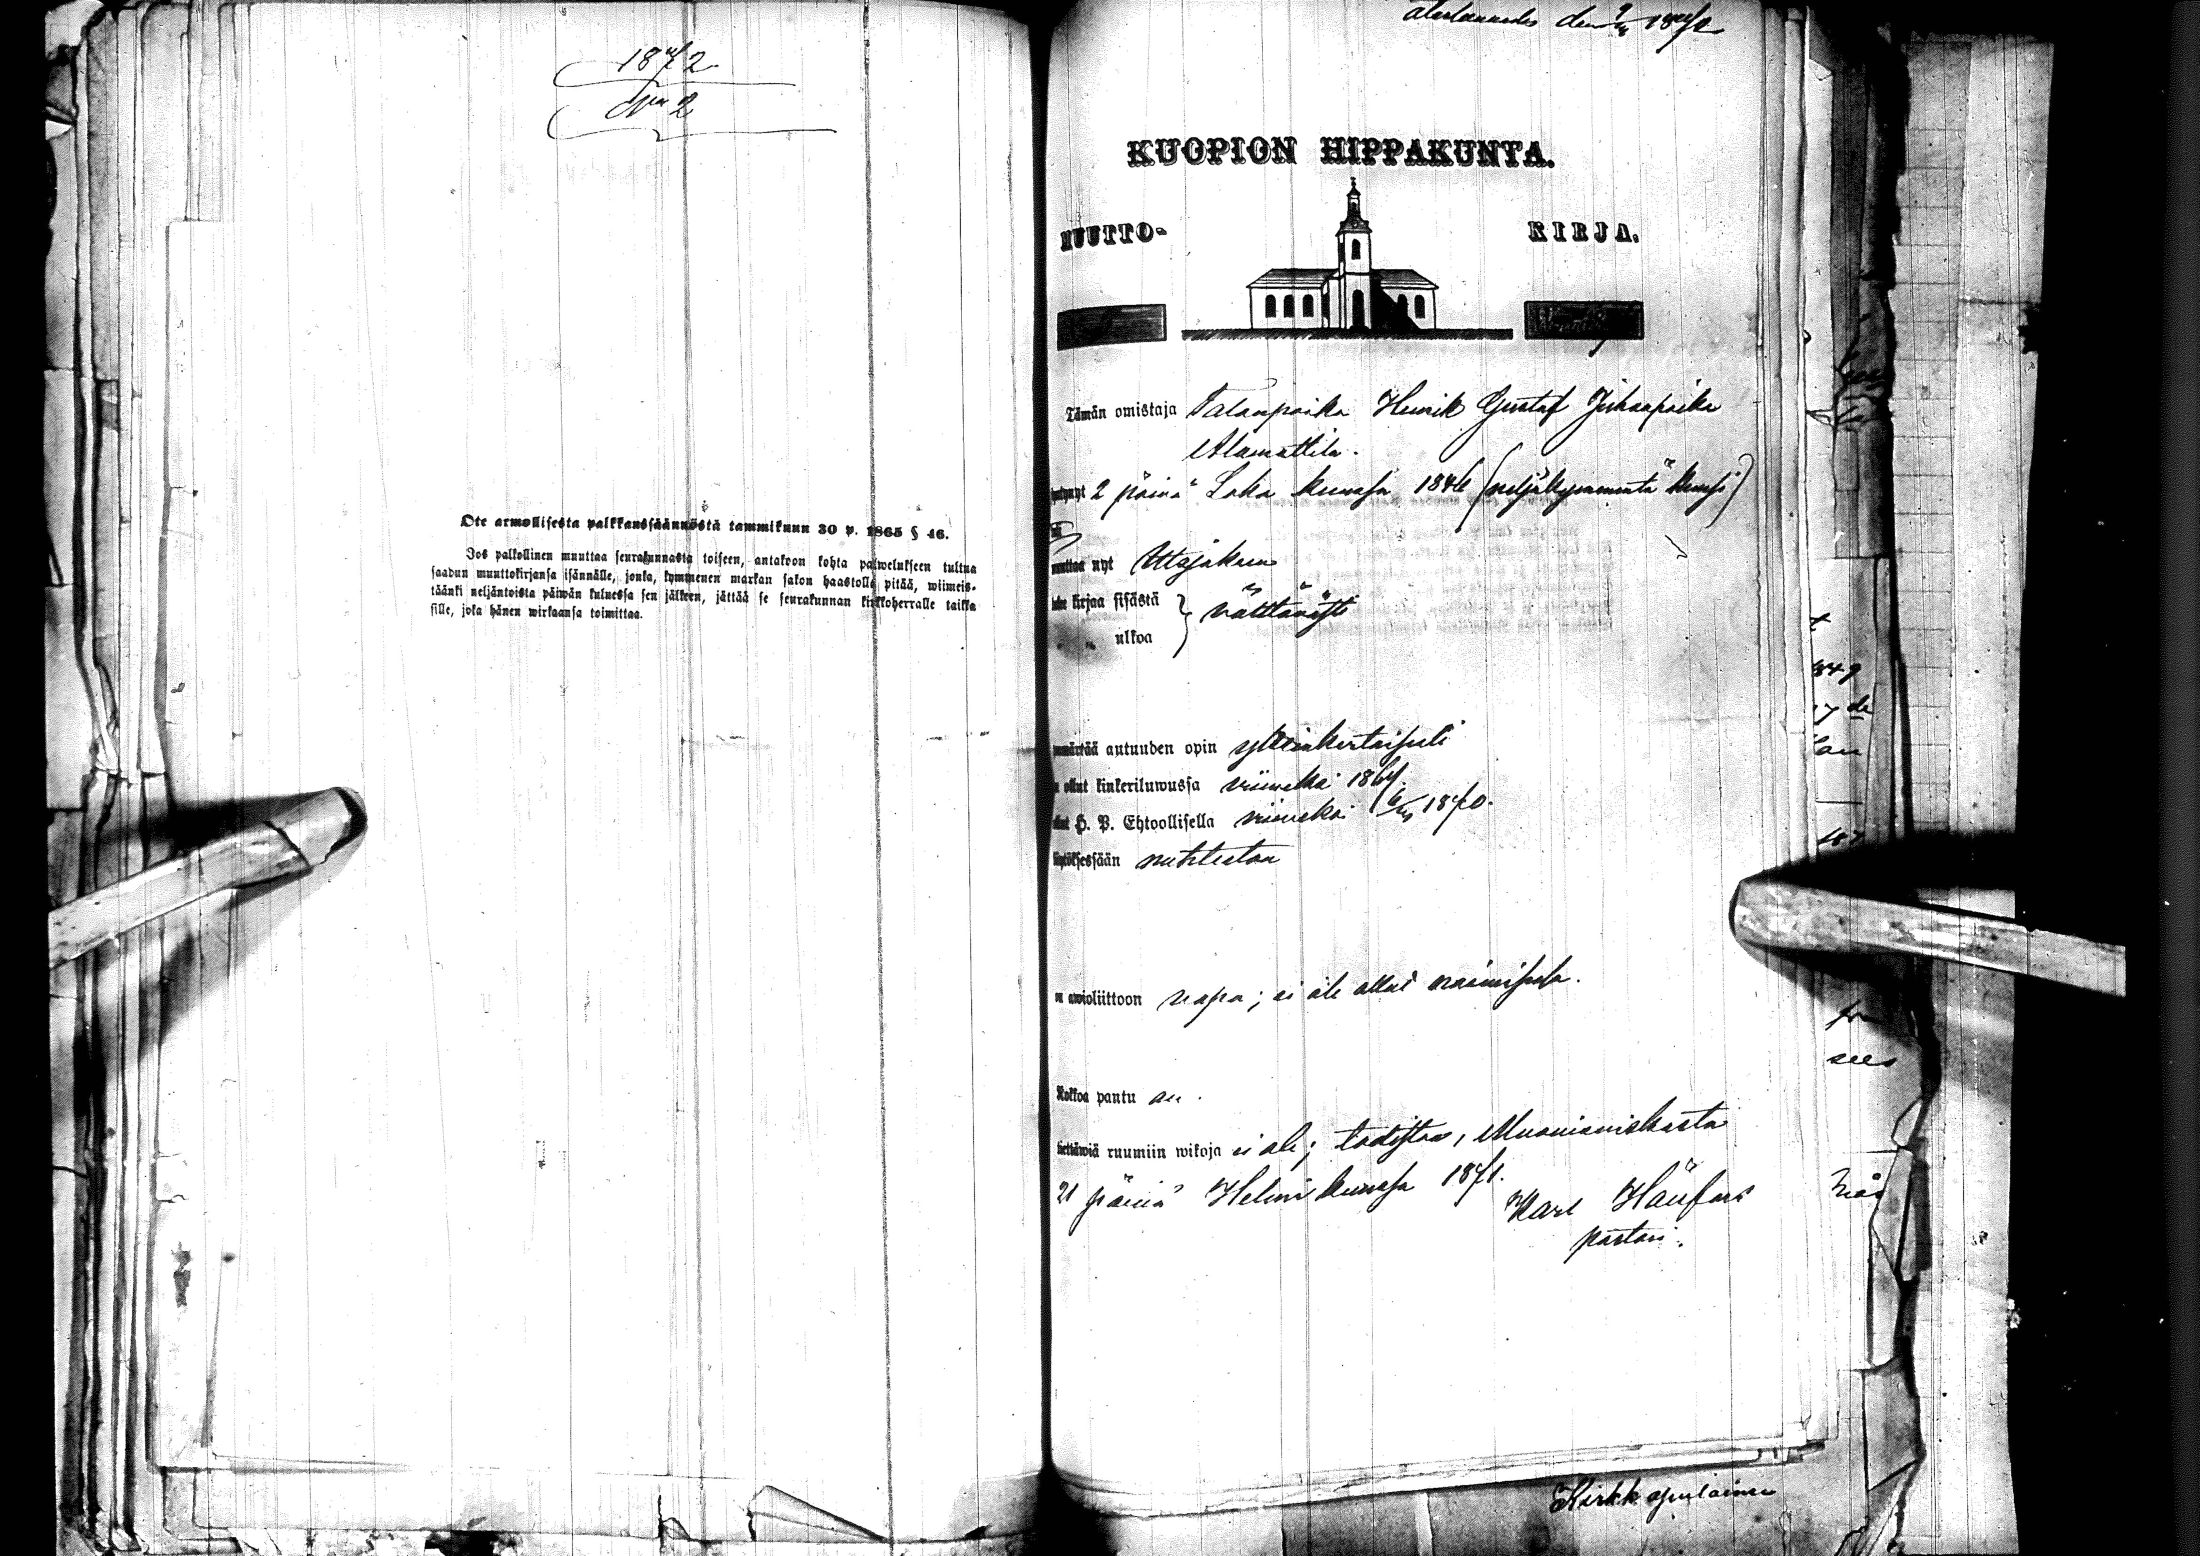 1872.
No 2
Ote armollisesta palkkaussäännöstä tammikuun 30 p. 1865 § 46.
Jos palkollinen muuttaa seurakunnasta toiseen, antakoon kohta palwelukseen tultua
saadun muuttokirjansa isännälle, jonka, kymmenen markan sakon haastolla pitää, wiimeis-
täänki neljäntoista päiwän kuluessa sen jälkeen, jättää se seurakunnan kirkkoherralle taikka
sille, joka hänen wirkaansa toimittaa.
den 1872
KUOPION HIPPAKUNTA.
MUUTTO- KIRJA.
Tämän omistaja Talonpoika Henrik Gustaf Juhanpoika
Alamattila.
2 päivä Loka kuussa 1846 (neljäkymmentä kuusi)
muuttaa nyt Utsjokeen
kirjaa sisästä
välttävästi
ulkoa
ymmärtää autuuden opin yksinkertaisesti
ollut kinkeriluwussa viimeksi 186
H. P. Ehtoollisella viimeksi 1870.
käytöksessään nuhteeton
on awioliittoon vapa; ei ole ollut naimisessa.
Rokkoa pantu on.
ruumiin wikoja ei ole; todistaa, Muonioniskasta
21 päivä Helmi kuussa 1871.
Karl
pastori.
849
sees
Kirkk apulainen